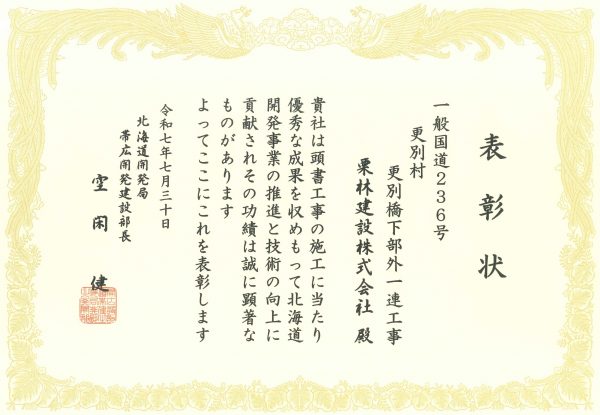 表彰状
一般国道２３６号
更別村
更別橋下部外一連工事
栗林建設株式会社 殿
貴社は頭書工事の施工に当たり
優秀な成果を収めもって北海道
開発事業の推進と技術の向上に
貢献されその功績は誠に顕著な
ものがあります
よってここにこれを表彰します
令和七年七月三十日
北海道開発局
帯広開発建設部長
空閑 健